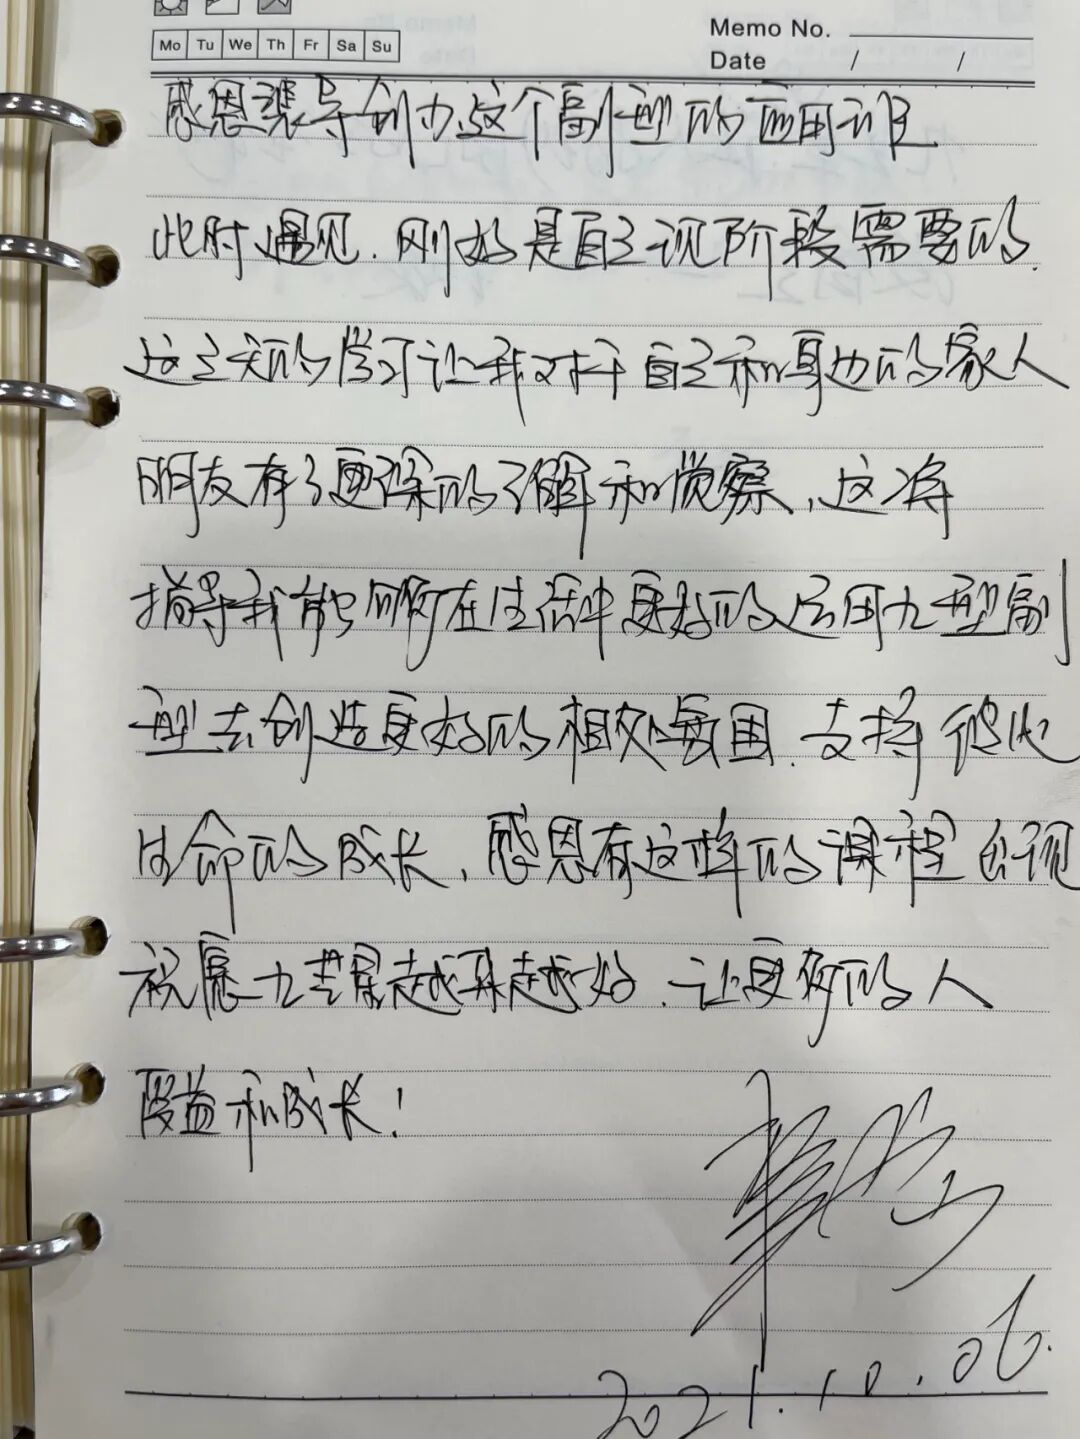 Mo Tu We Th Fr Sa Su
Memo No.
Date / /
感恩裴导创办这个副型的应用课
此时遇见.刚好是自己现阶段需要的.
这三天的学习让我对于自己和身边的家人
朋友有了更深的了解和觉察,这将
指导我能够在生活中更好的运用九型副
型去创造更好的相处氛围.支持彼此
生命的成长,感恩有这样的课程出现
祝愿九芒星越来越好.让更多的人
受益和成长!
2021.10.06.